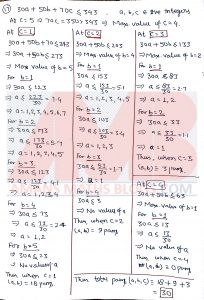 30a + 50b + 70c ≤ 343 a, b, c → +ve integers
At c = 5 ⇒ 70c = 350 > 343 ⇒ Max value of c = 4.
At c = 1
30a + 50b + 70 ≤ 343
⇒ 30a + 50b ≤ 273
⇒ Max value of b = 5
For b = 1
⇒ 30a ≤ 223
⇒ a = 1, 2, 3, 4, 5, 6, 7
For b = 2
30a ≤ 173
⇒ a ≤ 173/30
⇒ a = 1, 2, 3, 4, 5
For b = 3
30a ≤ 123
⇒ a = 1, 2, 3, 4
For b = 4
30a ≤ 73
⇒ a = 1, 2
For b = 5
⇒ 30a ≤ 23
⇒ No value of a
Thus when c = 1
(a, b) = 18 pairs
At c = 2
30a + 50b ≤ 203
⇒ Max value of b = 4
For b = 1
30a ≤ 153
⇒ a = 1, 2, 3, 4, 5
For b = 2
30a ≤ 103
⇒ a = 1, 2, 3
For b = 3
⇒ a = 1
For b = 4
30a ≤ 3
⇒ No value of a
Thus when c = 2
(a, b) = 9 pairs
At c = 3
30a + 50b ≤ 133
⇒ Max value of b = 2
For b = 1
30a ≤ 83
⇒ a = 1, 2
For b = 2
30a ≤ 33
⇒ a = 1
Thus, when c = 3
(a, b) ⇒ 3 pairs
At c = 4
30a + 50b ≤ 63
⇒ Max value of b = 1
For b = 1
30a ≤ 13
⇒ No value of a
Thus, when c = 4
(a, b) = 0 pairs
Thus total pairs (a, b, c) = 18 + 9 + 3
= 30